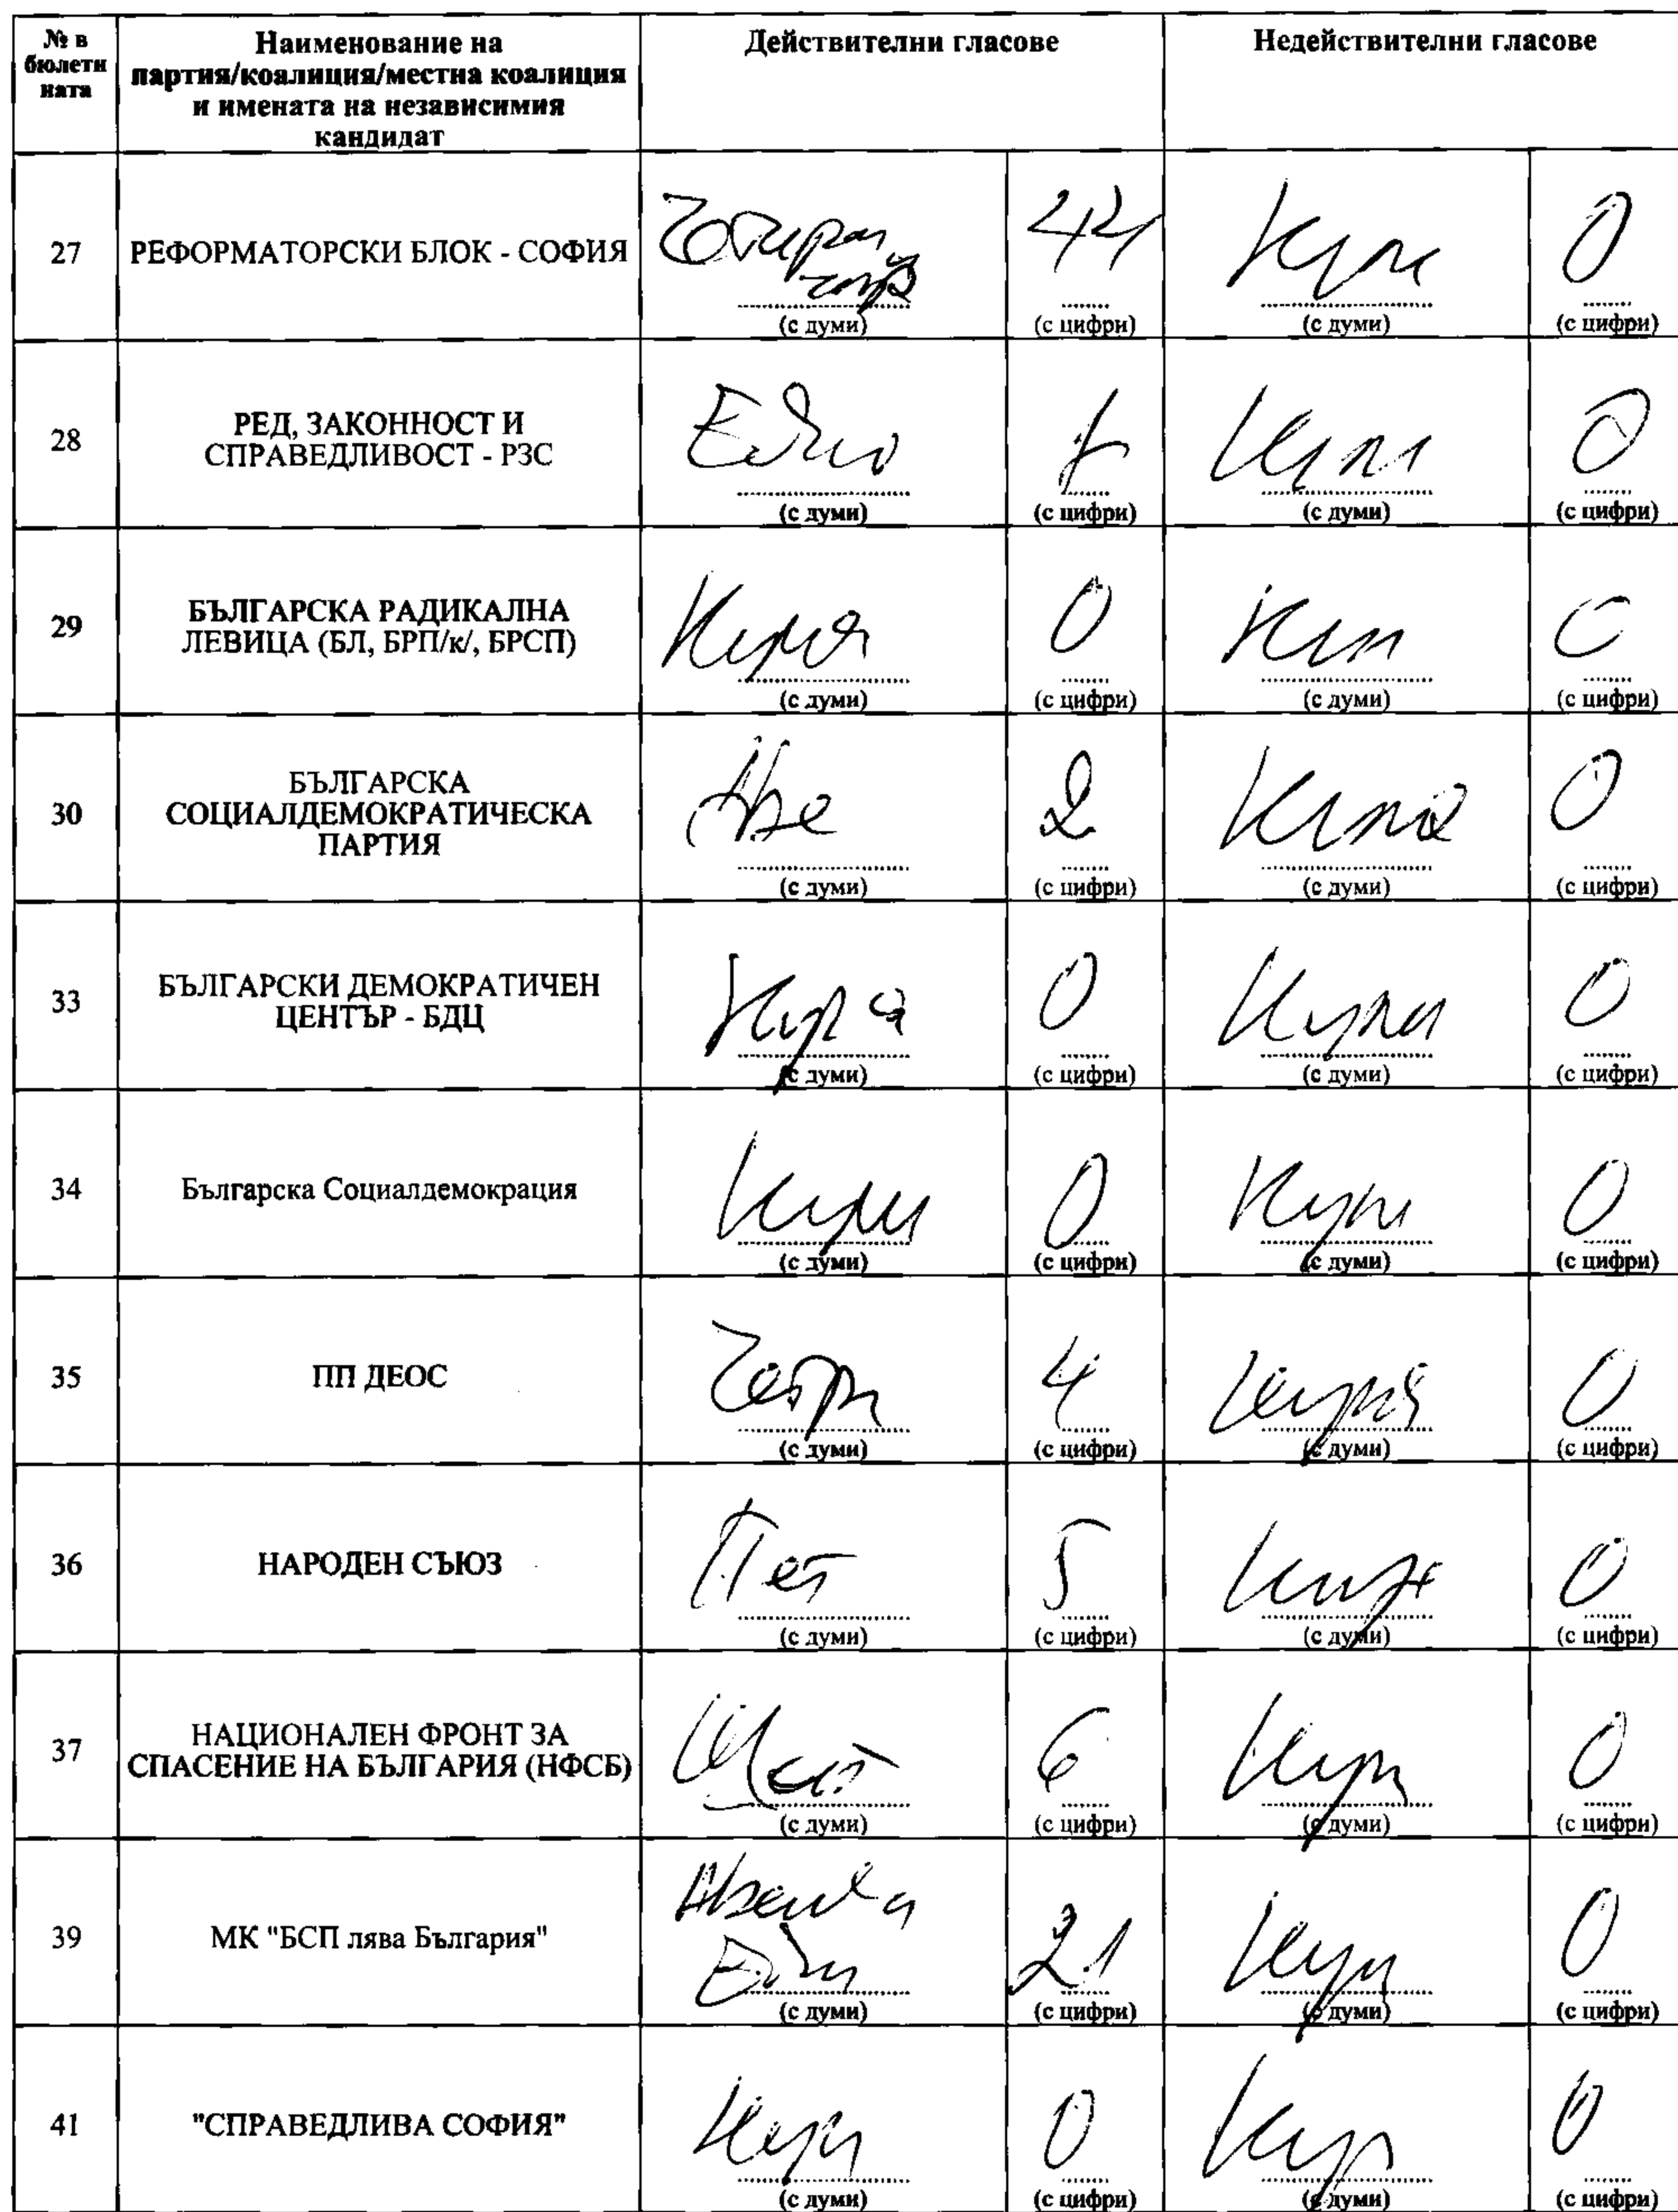 № в бюлетн ната
Наименование на партия/коалиция/местна коалиция и имената на независимия кандидат
Действителни гласове
Недействителни гласове
27 РЕФОРМАТОРСКИ БЛОК - СОФИЯ 44 0
(с думи) (с цифри) (с думи) (с цифри)
28 РЕД, ЗАКОННОСТ И
СПРАВЕДЛИВОСТ - РЗС Едно 1 0
(с думи) (с цифри) (с думи) (с цифри)
29 БЪЛГАРСКА РАДИКАЛНА
ЛЕВИЦА (БЛ, БРП/к/, БРСП) Нула 0 0
(с думи) (с цифри) (с думи) (с цифри)
30 БЪЛГАРСКА
СОЦИАЛДЕМОКРАТИЧЕСКА
ПАРТИЯ Две 2 Нула 0
(с думи) (с цифри) (с думи) (с цифри)
33 БЪЛГАРСКИ ДЕМОКРАТИЧЕН
ЦЕНТЪР - БДЦ Нула 0 Нула 0
(с думи) (с цифри) (с думи) (с цифри)
34 Българска Социалдемокрация Нула 0 Нула 0
(с думи) (с цифри) (с думи) (с цифри)
35 ПП ДЕОС 4 Нула 0
(с думи) (с цифри) (с думи) (с цифри)
36 НАРОДЕН СЪЮЗ Пет 5 0
(с думи) (с цифри) (с думи) (с цифри)
37 НАЦИОНАЛЕН ФРОНТ ЗА
СПАСЕНИЕ НА БЪЛГАРИЯ (НФСБ) Шест 6 0
(с думи) (с цифри) (с думи) (с цифри)
39 МК "БСП лява България" 21 0
(с думи) (с цифри) (с думи) (с цифри)
41 "СПРАВЕДЛИВА СОФИЯ" 0 0
(с думи) (с цифри) (с думи) (с цифри)